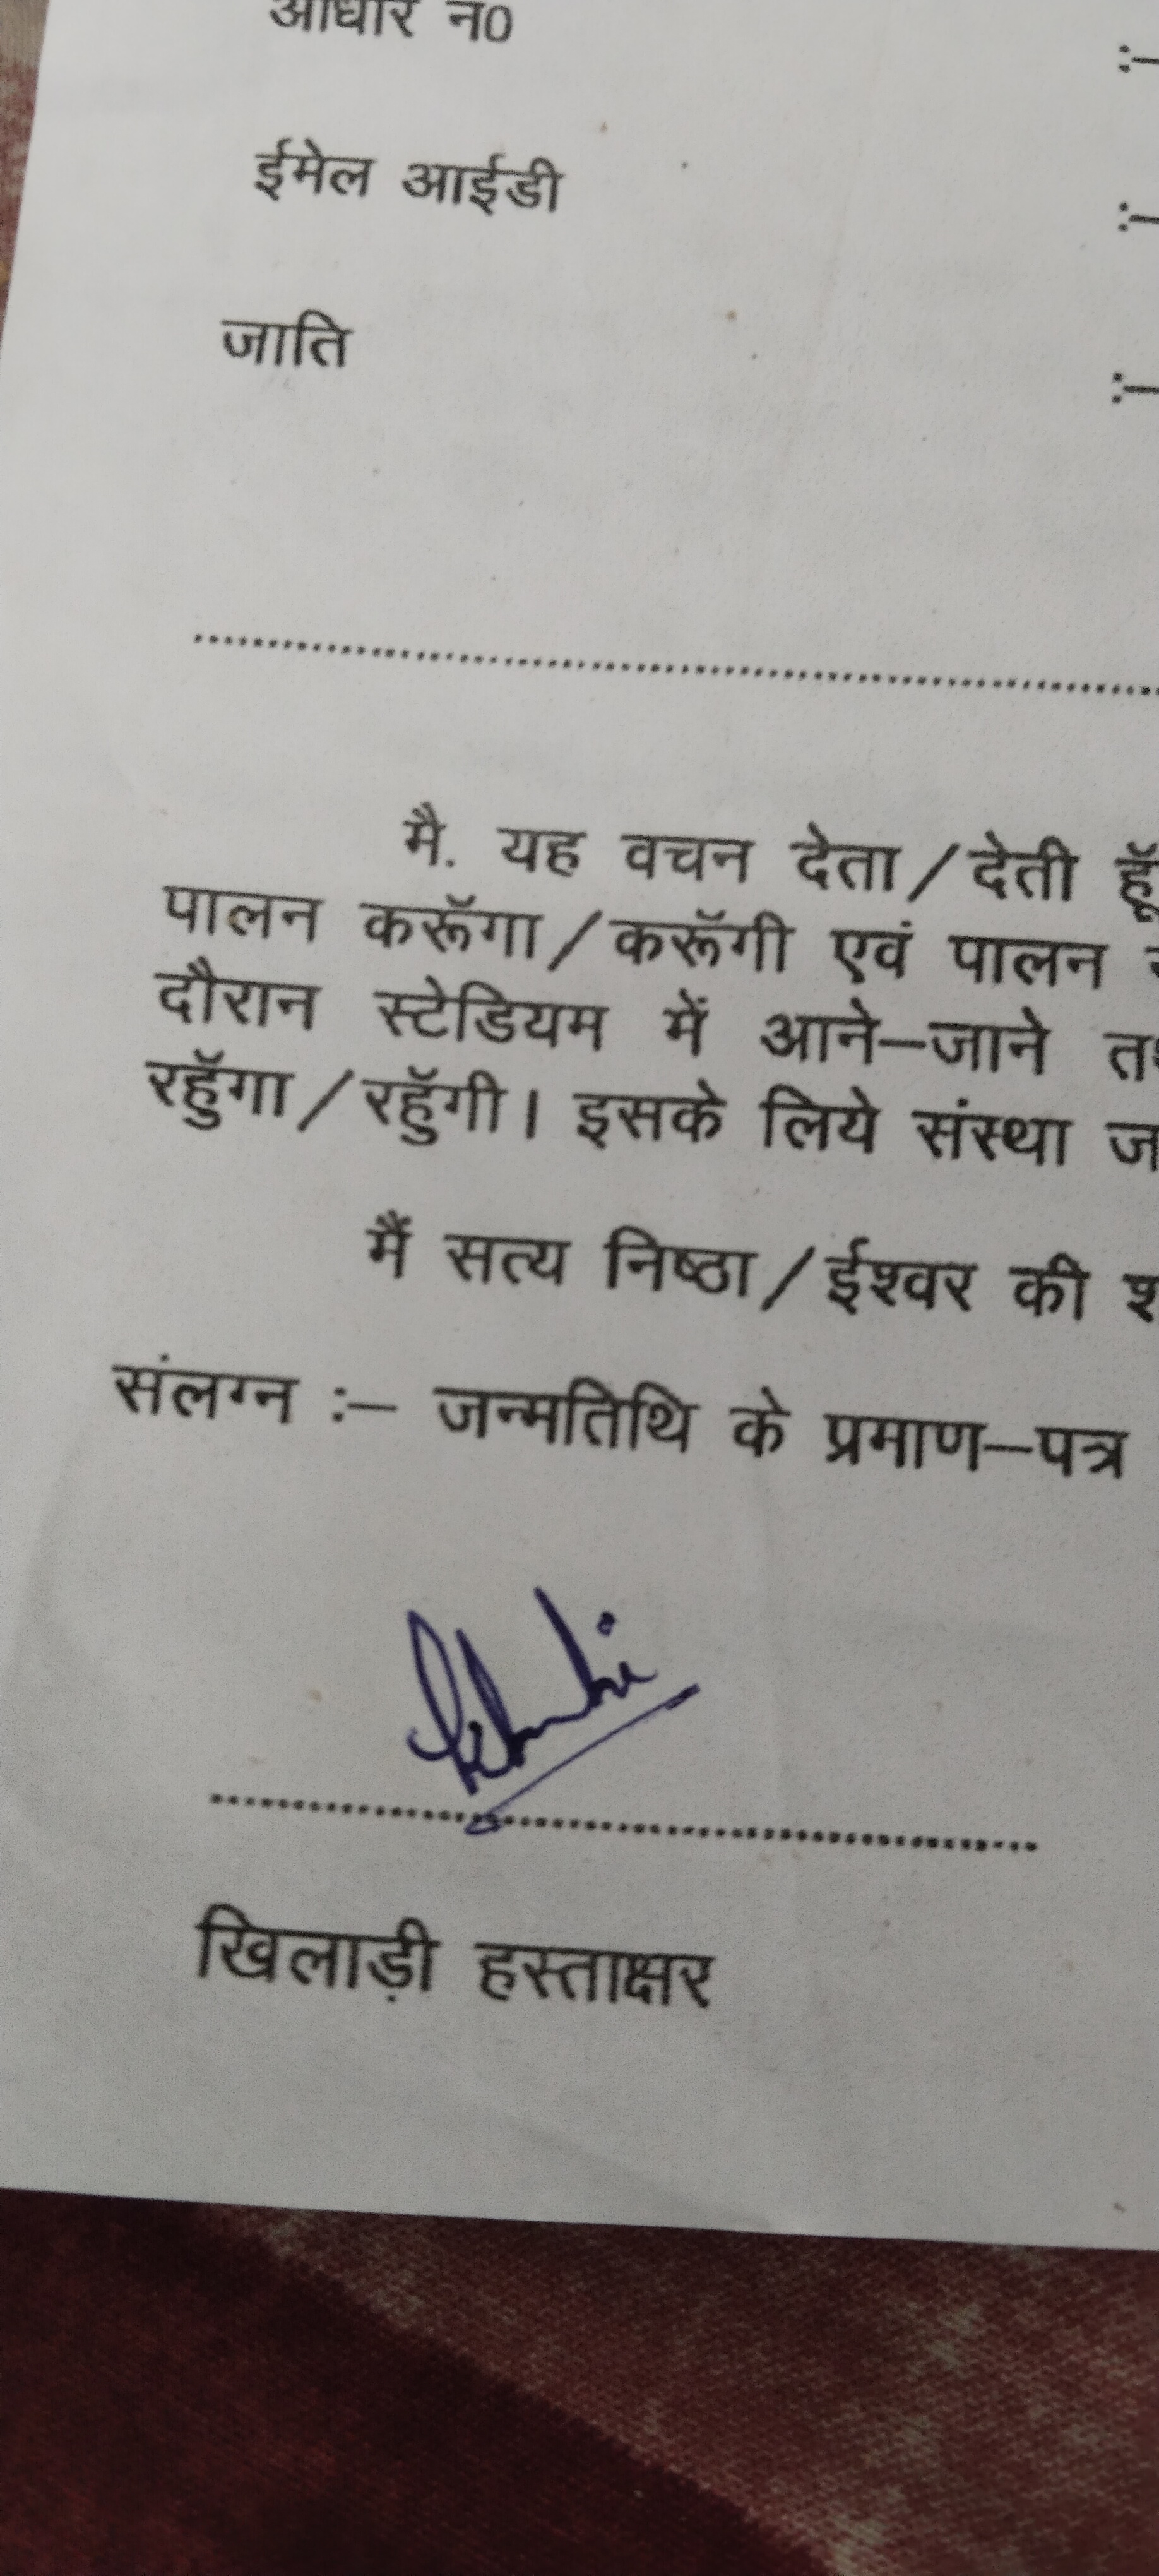 आधार न0 :–
ईमेल आईडी :–
जाति :–
मै. यह वचन देता/देती हूॅ
पालन करूॅगा/करूॅगी एवं पालन
दौरान स्टेडियम में आने–जाने
रहुॅगा/रहुॅगी। इसके लिये संस्था
मैं सत्य निष्ठा/ईश्वर की
संलग्न :– जन्मतिथि के प्रमाण–पत्र
खिलाड़ी हस्ताक्षर